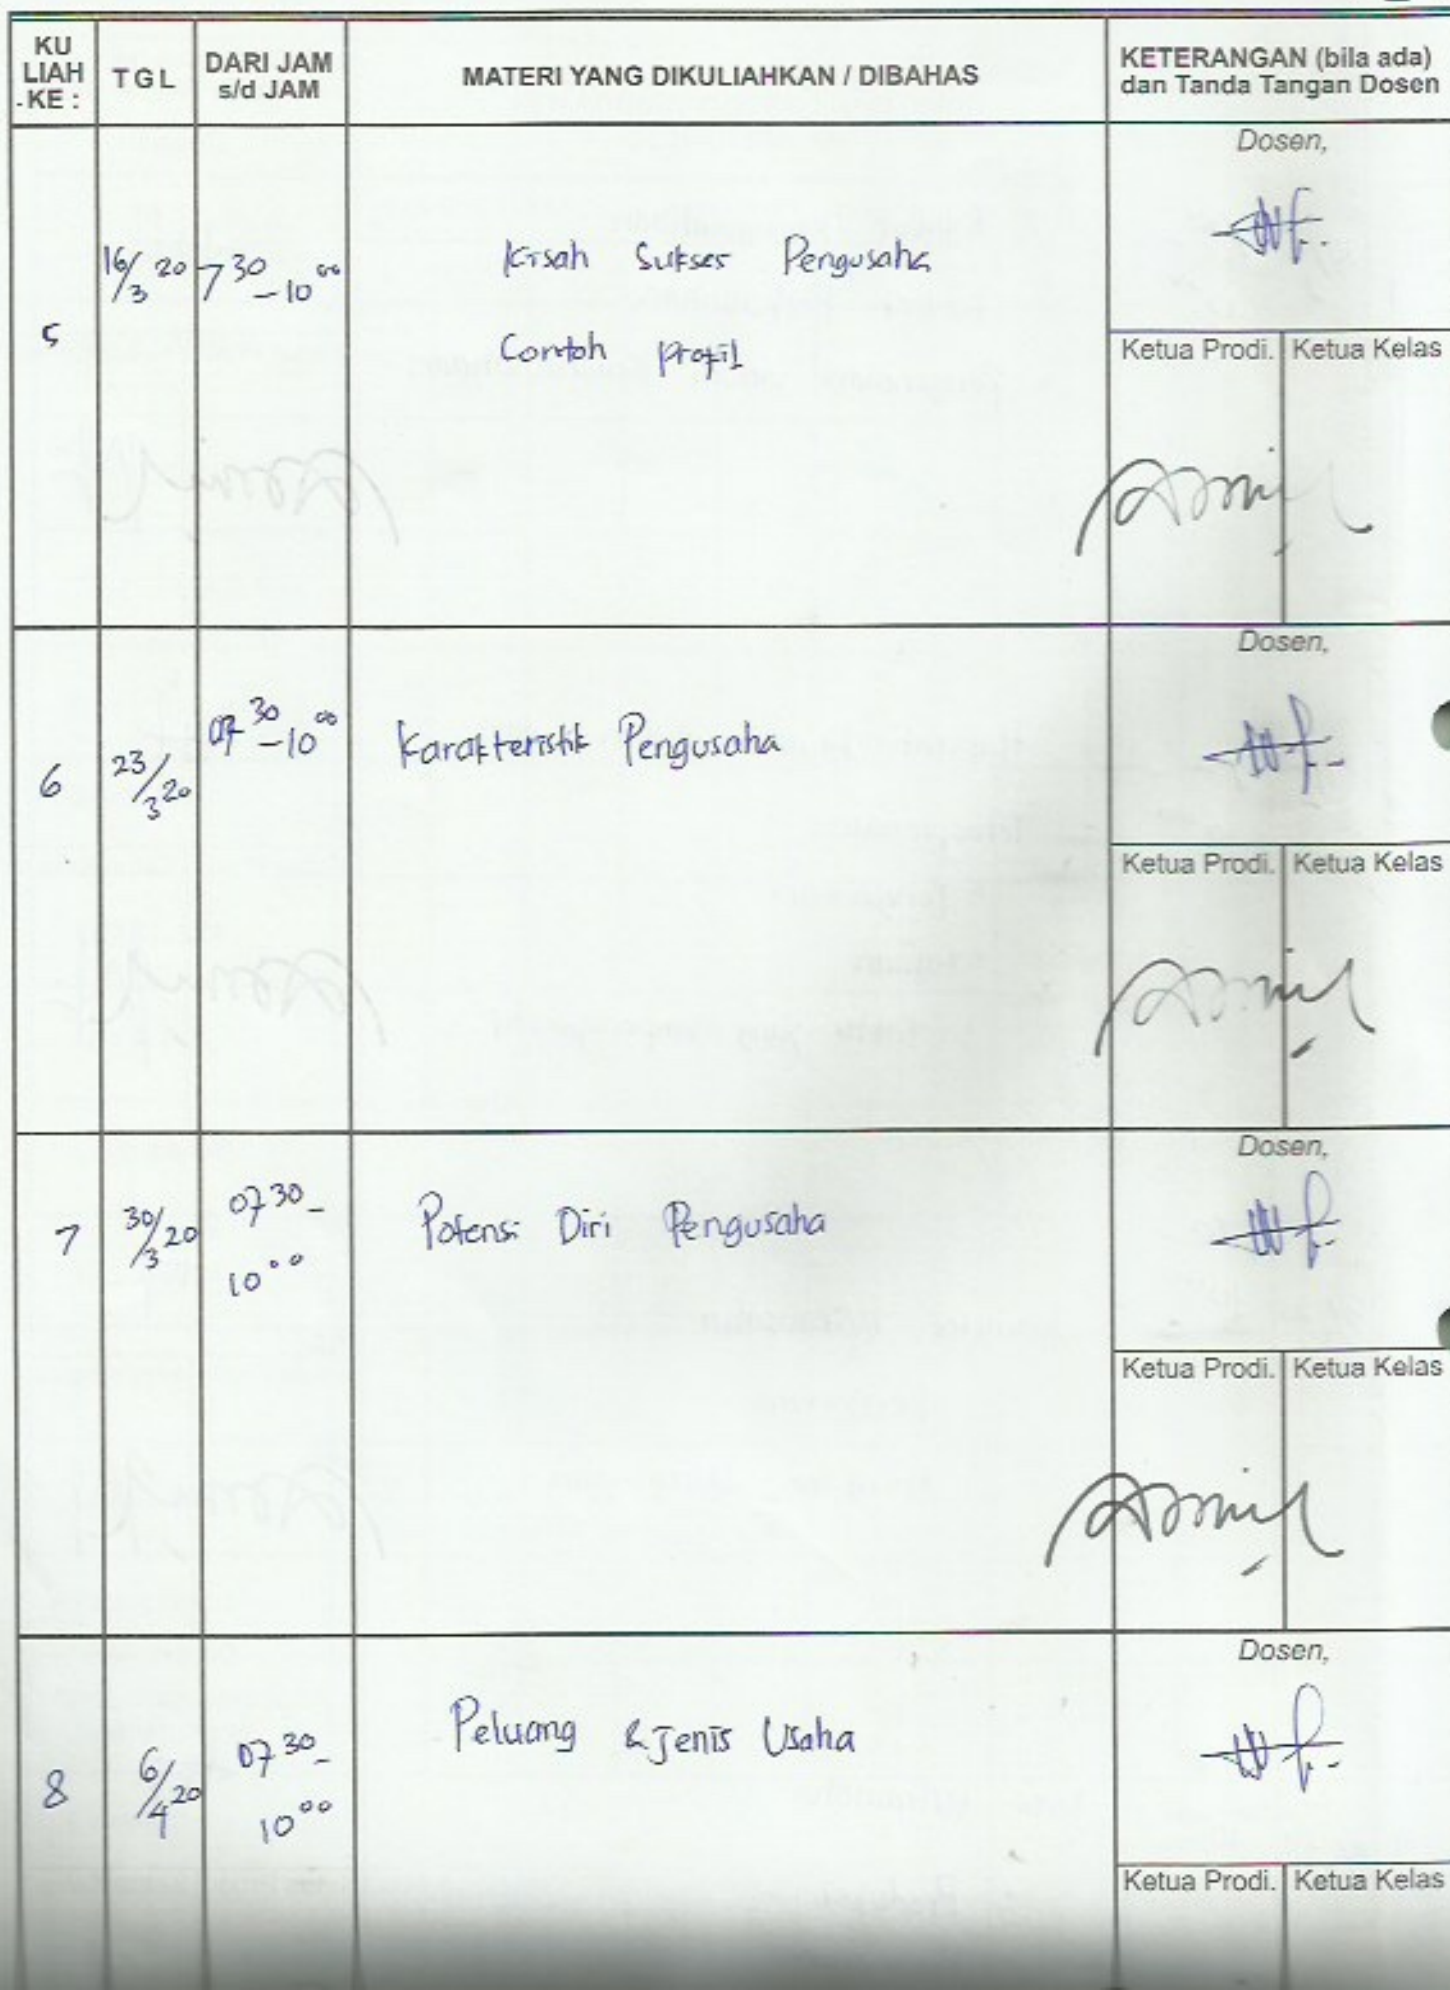 KU LIAH KE :
TGL
DARI JAM s/d JAM
MATERI YANG DIKULIAHKAN / DIBAHAS
KETERANGAN (bila ada) dan Tanda Tangan Dosen
5
16/3 20
7 30 - 10 00
Kisah Sukses Pengusaha
Contoh Profil
Dosen,
Ketua Prodi.
Ketua Kelas
6
23/3 20
07 30 - 10 00
Karakteristik Pengusaha
Dosen,
Ketua Prodi.
Ketua Kelas
7
30/3 20
07 30 -
10 00
Potensi Diri Pengusaha
Dosen,
Ketua Prodi.
Ketua Kelas
8
6/4 20
07 30 -
10 00
Peluang & Jenis Usaha
Dosen,
Ketua Prodi.
Ketua Kelas